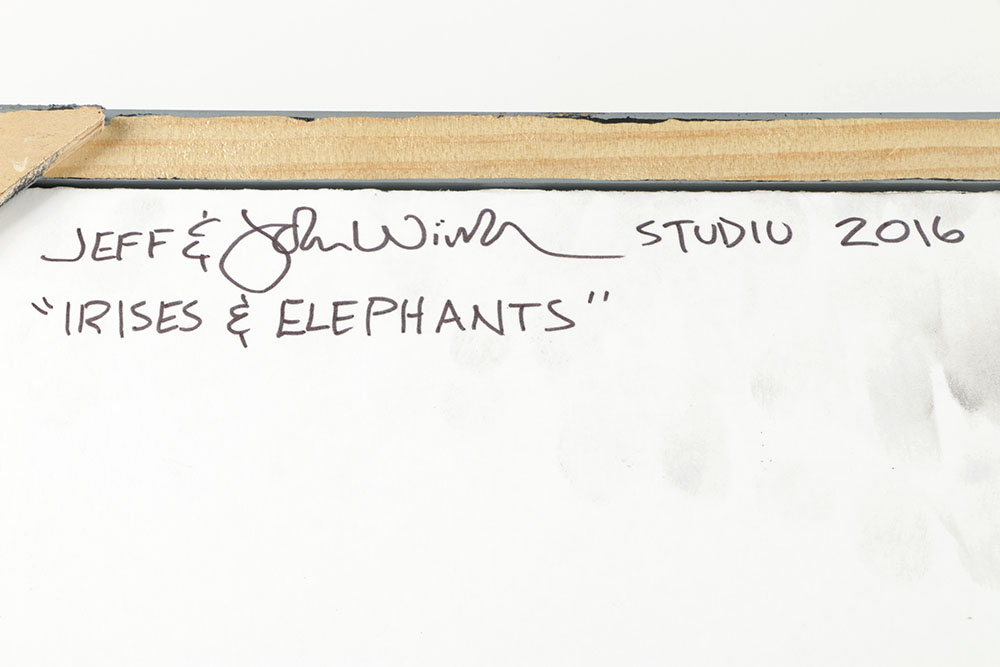 JEFF & John STUDIO 2016
"IRISES & ELEPHANTS"